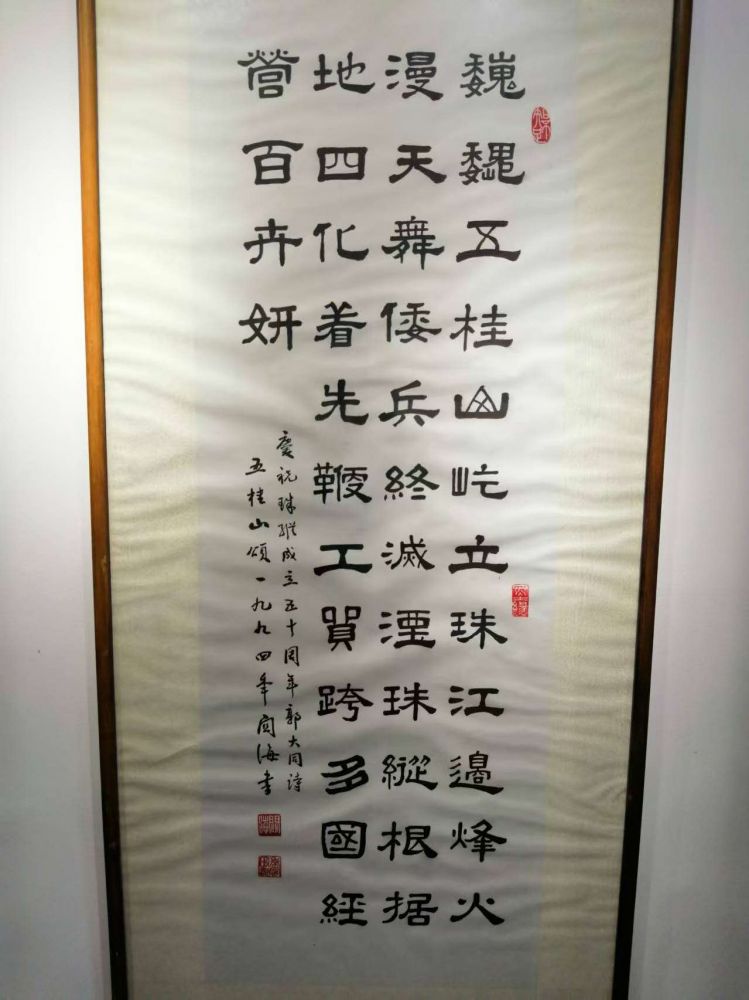 巍巍五桂山屹立珠江邊烽火
漫天舞倭兵終滅湮珠縱根据
地四化着先鞭工貿跨多國經
營百卉妍
慶祝珠縱成立五十周年郭大同詩
五桂山頌一九九四年 海書